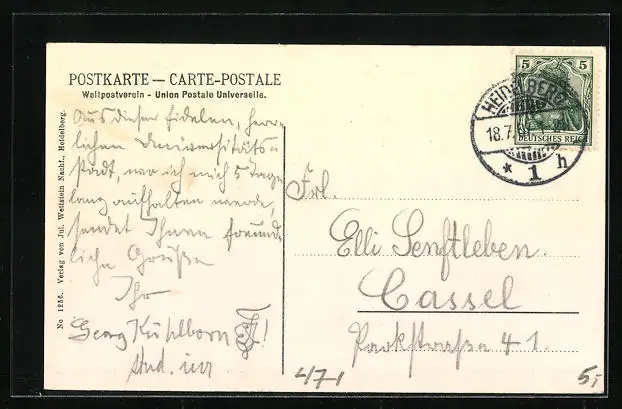 POSTKARTE — CARTE-POSTALE
Weltpostverein - Union Postale Universelle.
Aus dieser fidelen, herr-
lichen Universitäts-
stadt, wo ich mich 5 Tage
lang aufhalten werde,
sendet Ihnen freund-
liche Grüße
Ihr
Georg Kuhlborn
stud. iur
No 1256. Verlag von Jul. Wettstein Nachf., Heidelberg.
5 5
DEUTSCHES REICH
HEIDELBERG
18.7.
* 1 h
Frl.
Elli Senftleben.
Cassel
Parkstraße 41.
4/71
5,-